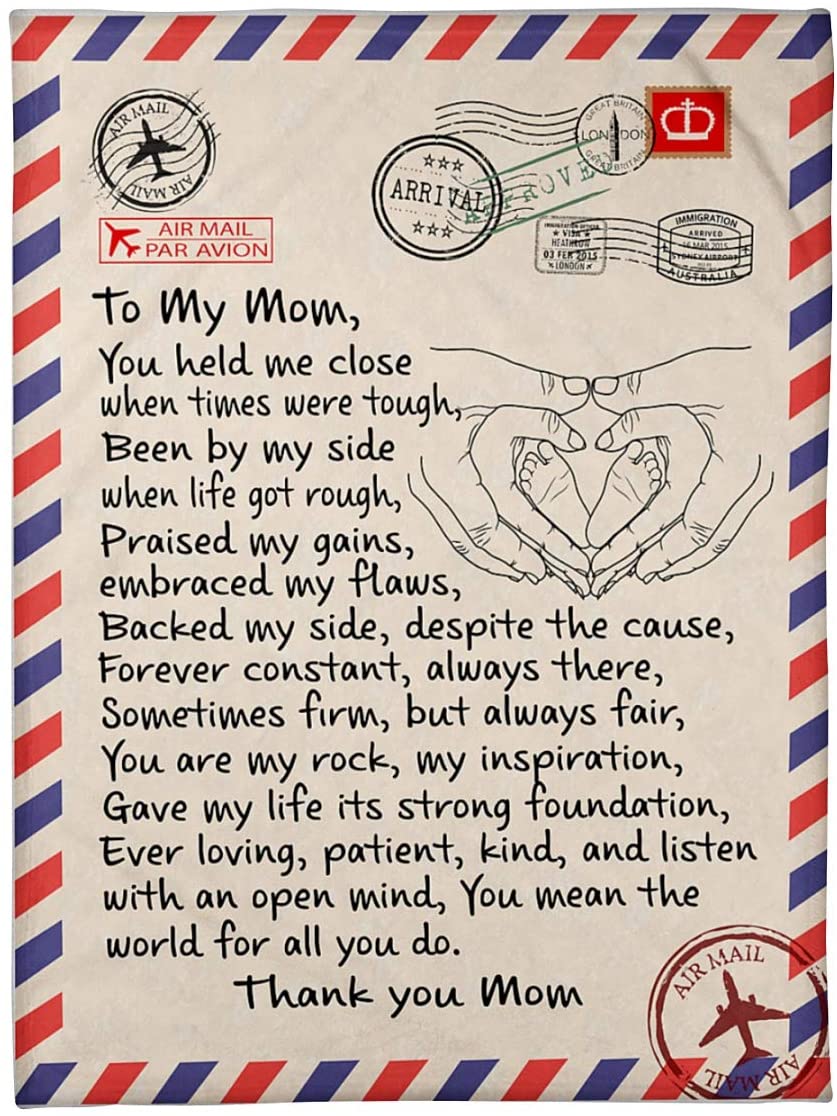 AIR MAIL
AIR MAIL
GREAT BRITAIN
LONDON
GREAT BRITAIN
ARRIVAL
AIR MAIL
PAR AVION
IMMIGRATION OFFICER
VISA
HEATHROW
03 FEB 2015
LONDON
IMMIGRATION
ARRIVED
16 MAR 2015
SYDNEY AIRPORT
AUSTRALIA
To My Mom,
You held me close
when times were tough,
Been by my side
when life got rough,
Praised my gains,
embraced my flaws,
Backed my side, despite the cause,
Forever constant, always there,
Sometimes firm, but always fair,
You are my rock, my inspiration,
Gave my life its strong foundation,
Ever loving, patient, kind, and listen
with an open mind, You mean the
world for all you do.
Thank you Mom
AIR MAIL
AIR MAIL